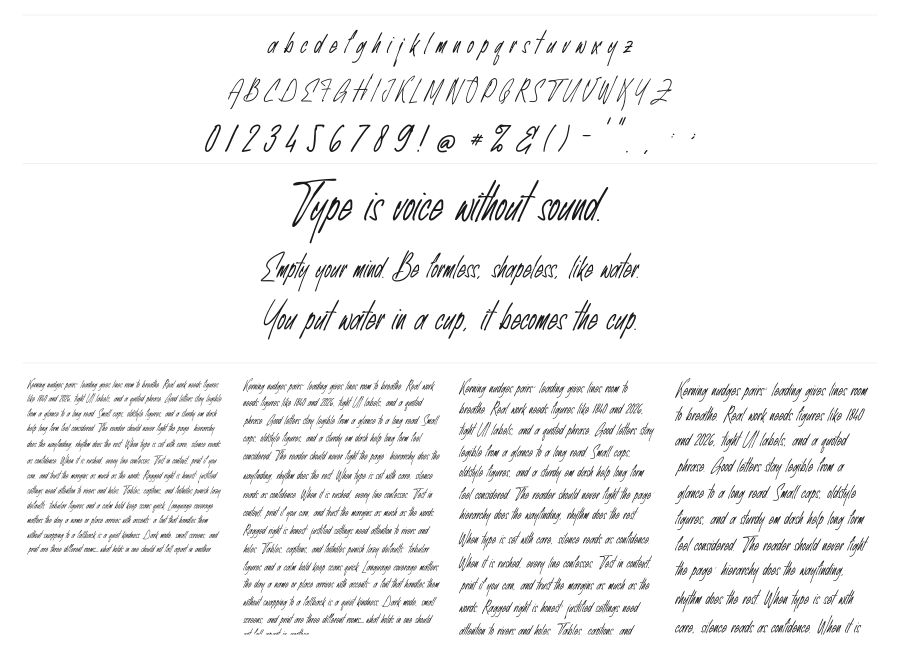 a b c d e f g h i j k l m n o p q r s t u v w x y z
A B C D E F G H I J K L M N O P Q R S T U V W X Y Z
0 1 2 3 4 5 6 7 8 9 ! @ # % & ( ) - ' " . , : ;
Type is voice without sound.
Empty your mind. Be formless, shapeless, like water.
You put water in a cup, it becomes the cup.
Kerning nudges pairs; leading gives lines room to breathe. Real work needs figures
like 1840 and 2026, tight UI labels, and a quoted phrase. Good letters stay legible
from a glance to a long read. Small caps, oldstyle figures, and a sturdy em dash
help long form feel considered. The reader should never fight the page: hierarchy
does the wayfinding, rhythm does the rest. When type is set with care, silence reads
as confidence. When it is rushed, every line confesses. Test in context, print if you
can, and trust the margins as much as the words. Ragged right is honest; justified
settings need attention to rivers and holes. Tables, captions, and footnotes punish lazy
defaults. Tabular figures and a calm bold keep scans quick. Language coverage
matters the day a name or place arrives with accents; a font that handles them
without swapping to a fallback is a quiet kindness. Dark mode, small screens, and
print are three different rooms... what holds in one should not fall apart in another.
Kerning nudges pairs; leading gives lines room to breathe. Real work
needs figures like 1840 and 2026, tight UI labels, and a quoted
phrase. Good letters stay legible from a glance to a long read. Small
caps, oldstyle figures, and a sturdy em dash help long form feel
considered. The reader should never fight the page: hierarchy does the
wayfinding, rhythm does the rest. When type is set with care, silence
reads as confidence. When it is rushed, every line confesses. Test in
context, print if you can, and trust the margins as much as the words.
Ragged right is honest; justified settings need attention to rivers and
holes. Tables, captions, and footnotes punish lazy defaults. Tabular
figures and a calm bold keep scans quick. Language coverage matters
the day a name or place arrives with accents; a font that handles them
without swapping to a fallback is a quiet kindness. Dark mode, small
screens, and print are three different rooms... what holds in one should
not fall apart in another.
Kerning nudges pairs; leading gives lines room to
breathe. Real work needs figures like 1840 and 2026,
tight UI labels, and a quoted phrase. Good letters stay
legible from a glance to a long read. Small caps,
oldstyle figures, and a sturdy em dash help long form
feel considered. The reader should never fight the page:
hierarchy does the wayfinding, rhythm does the rest.
When type is set with care, silence reads as confidence.
When it is rushed, every line confesses. Test in context,
print if you can, and trust the margins as much as the
words. Ragged right is honest; justified settings need
attention to rivers and holes. Tables, captions, and
Kerning nudges pairs; leading gives lines room
to breathe. Real work needs figures like 1840
and 2026, tight UI labels, and a quoted
phrase. Good letters stay legible from a
glance to a long read. Small caps, oldstyle
figures, and a sturdy em dash help long form
feel considered. The reader should never fight
the page: hierarchy does the wayfinding,
rhythm does the rest. When type is set with
care, silence reads as confidence. When it is